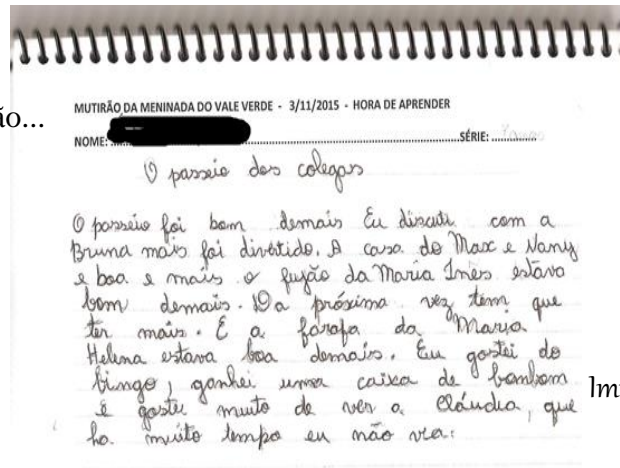 ão...
MUTIRÃO DA MENINADA DO VALE VERDE - 3/11/2015 - HORA DE APRENDER
NOME: SÉRIE:
O passeio dos colegas
O passeio foi bom demais Eu discuti com a
Bruna mais foi divertido. A casa do Max e Nany
e boa e mais o fujão da Maria Ines estava
bom demais. Da próxima vez tem que
ter mais. E a farofa da Maria
Helena estava boa demais. Eu gostei do
bingo, ganhei uma caixa de bombom
e gostei muito de ver a Cláudia, que
ha muito tempo eu não via.